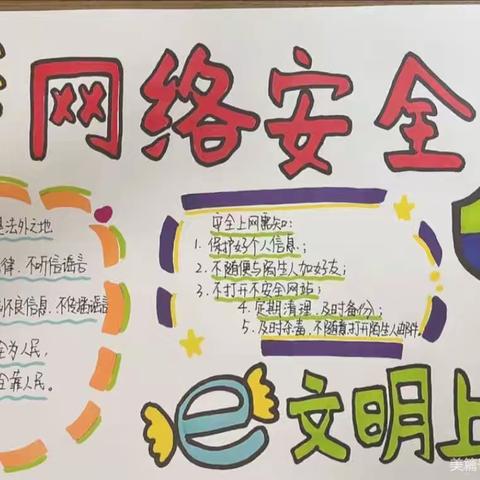 网络安全
是法外之地
律、不听信谣言
不良信息、不传播谣言
全为人民，
全靠人民。
安全上网需知：
1. 保护好个人信息；
2. 不随便与陌生人加好友；
3. 不打开不安全网站；
4. 定期清理，及时备份；
5. 及时杀毒，不随意打开陌生人邮件。
e 文明上
美篇